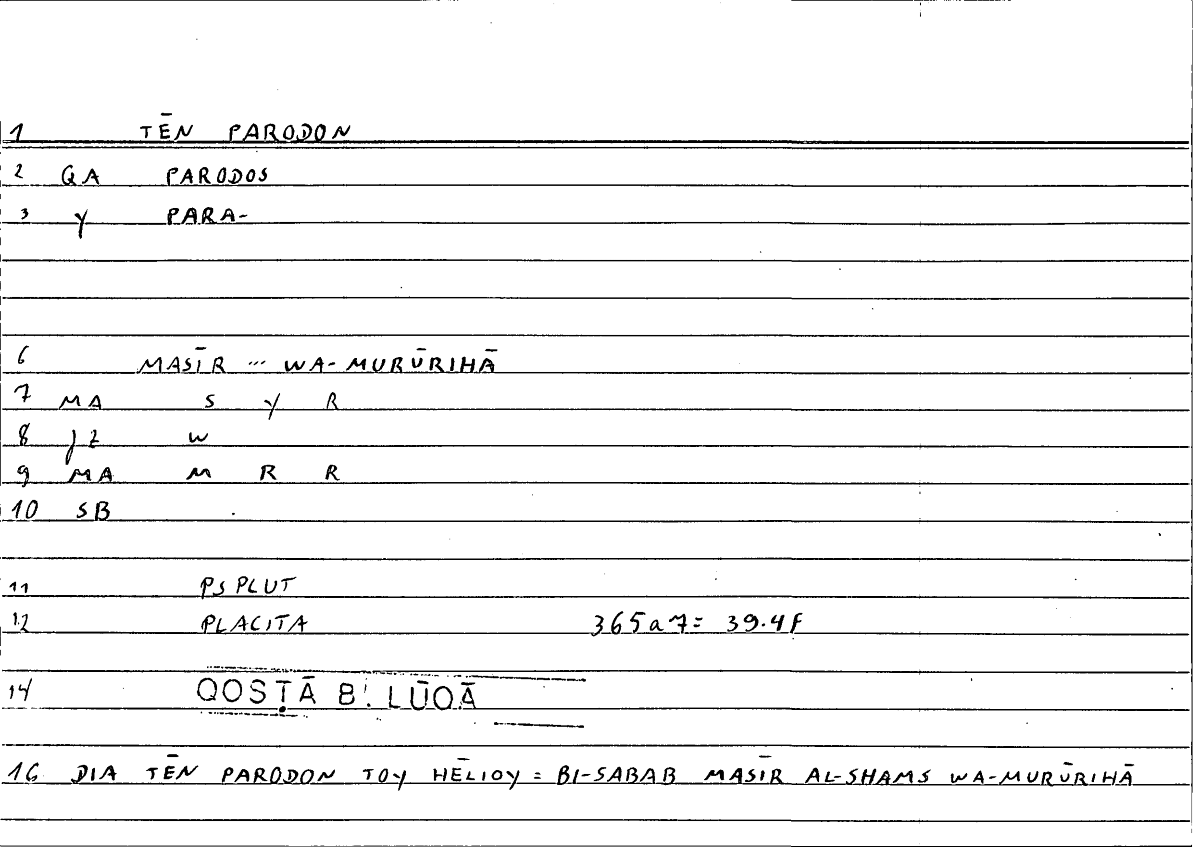 1 TĒN PARODON
2 QA PARODOS
3 Y PARA-
6 MASĪR ... WA-MURŪRIHĀ
7 MA S Y R
8 J2 W
9 MA M R R
10 SB
11 PSPLUT
12 PLACITA 365a7= 39.4f
14 QOSṬĀ B. LŪQĀ
16 DIA TĒN PARODON TOY HĒLIOY = BI-SABAB MASĪR AL-SHAMS WA-MURŪRIHĀ